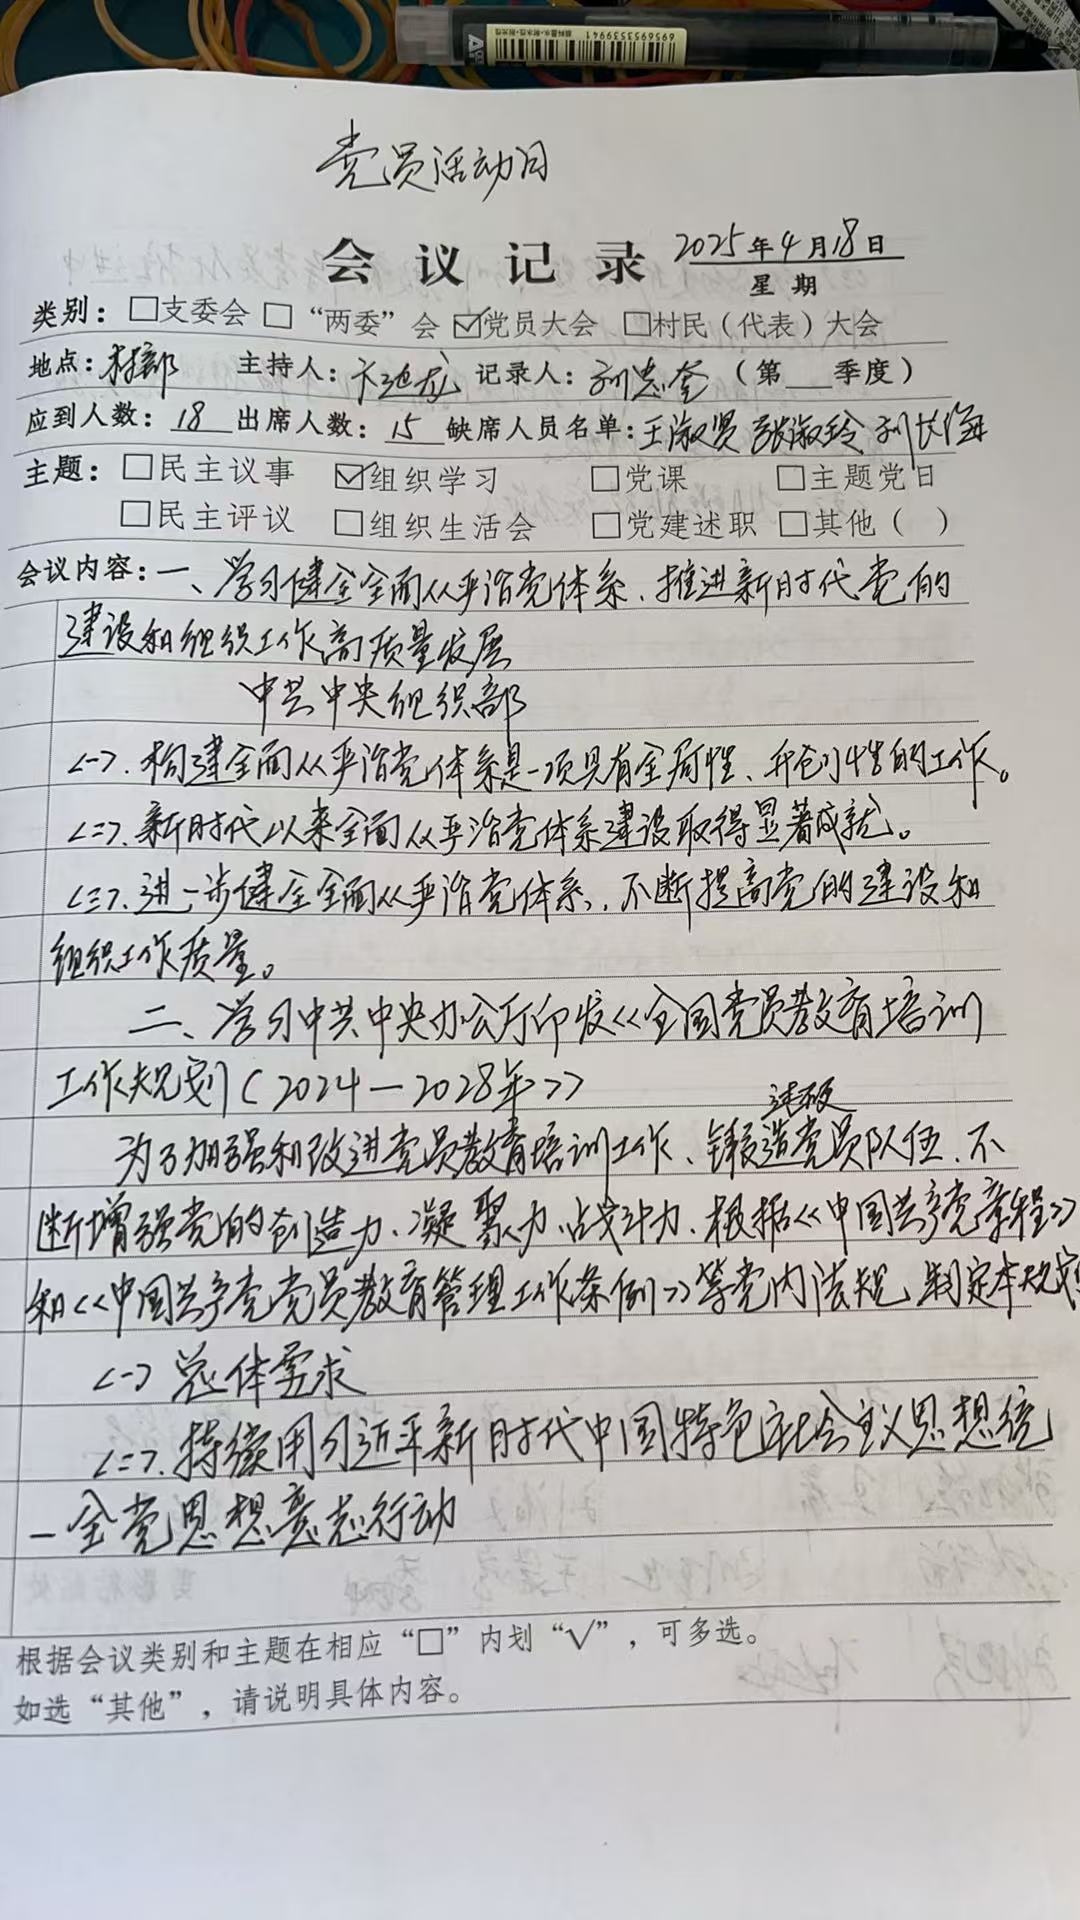 6956953539941
党员活动日
会议记录 2025年4月18日
星期
类别：□支委会 □“两委”会 ☑党员大会 □村民（代表）大会
地点：村部 主持人：卞延龙 记录人：刘志奎 （第 季度）
应到人数：18 出席人数：15 缺席人员名单：王淑贤 张淑玲 刘长海
主题：□民主议事 ☑组织学习 □党课 □主题党日
□民主评议 □组织生活会 □党建述职 □其他（ ）
会议内容：一、学习健全全面从严治党体系、推进新时代党的
建设和组织工作高质量发展
中共中央组织部
<一>.构建全面从严治党体系是一项具有全局性、开创性的工作。
<二>.新时代以来全面从严治党体系建设取得显著成就。
<三>.进一步健全全面从严治党体系，不断提高党的建设和
组织工作质量。
二、学习中共中央办公厅印发<<全国党员教育培训
工作规划(2024—2028年>>
过硬
为了加强和改进党员教育培训工作、锻造党员队伍、不
断增强党的创造力、凝聚力、战斗力、根据<<中国共产党章程>>
和<<中国共产党党员教育管理工作条例>>等党内法规，制定本规划
<一>总体要求
<二>.持续用习近平新时代中国特色社会主义思想统
一全党思想意志行动
根据会议类别和主题在相应“□”内划“√”，可多选。
如选“其他”，请说明具体内容。